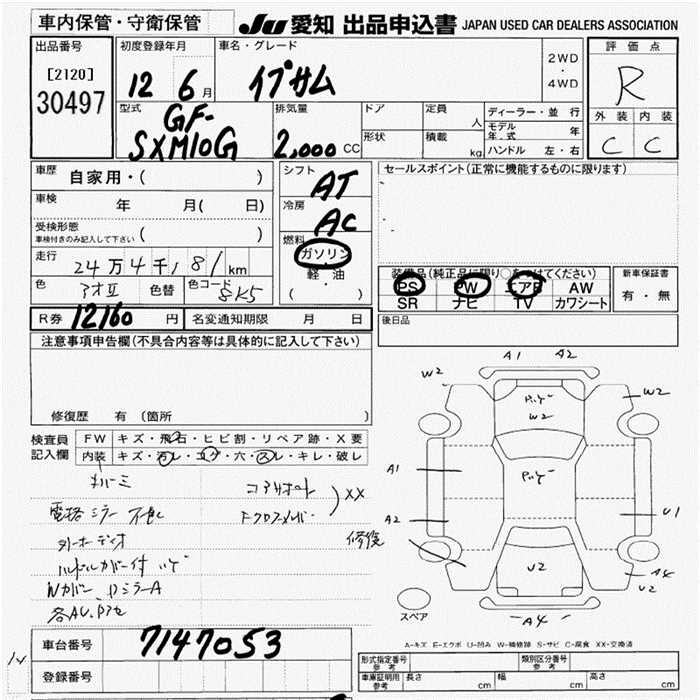 車内保管・守衛保管
JU 愛知 出品申込書 JAPAN USED CAR DEALERS ASSOCIATION
出品番号
[2120]
30497
初度登録年月
12 6月
車名・グレード
イプサム
2WD
・
4WD
評価点
R
外装 内装
C C
型式
GF-
SXM10G
排気量
2,000 CC
ドア
形状
定員
人
積載
kg
ディーラー・並行
モデル年式 年
ハンドル 左・右
車歴
自家用・( )
車検
年 月( 日)
受検形態
車検付きのみ記入して下さい ( )
走行
24万4千181km
色
アオⅡ
色替
色コード
8K5
シフト
AT
冷房
AC
燃料
ガソリン
・
軽油
・
( )
セールスポイント(正常に機能するものに限ります)
装備品(純正品に限り○をつけてください)
PS PW エアB AW
SR ナビ TV カワシート
新車保証書
有・無
R券 12160円
名変通知期限 月 日
後日品
注意事項申告欄(不具合内容等は具体的に記入して下さい)
修復歴 有(箇所 )
検査員記入欄
FW キズ・飛石・ヒビ割・リペア跡・X要
内装 キズ・汚レ・コゲ・穴・スレ・キレ・破レ
電格ミラー不良
コアサポート
XX
修復
A1 A2
W2
W2
W2
A1
A2
U1
U2
A4
U2
A4
スペア
A-キズ E-エクボ U-凹み W-補修跡 S-サビ C-腐食 XX-交換済
車台番号
7147053
登録番号
形式指定番号
参考
類別区分番号
参考
車庫証明用
参考
長さ cm
幅 cm
高さ cm